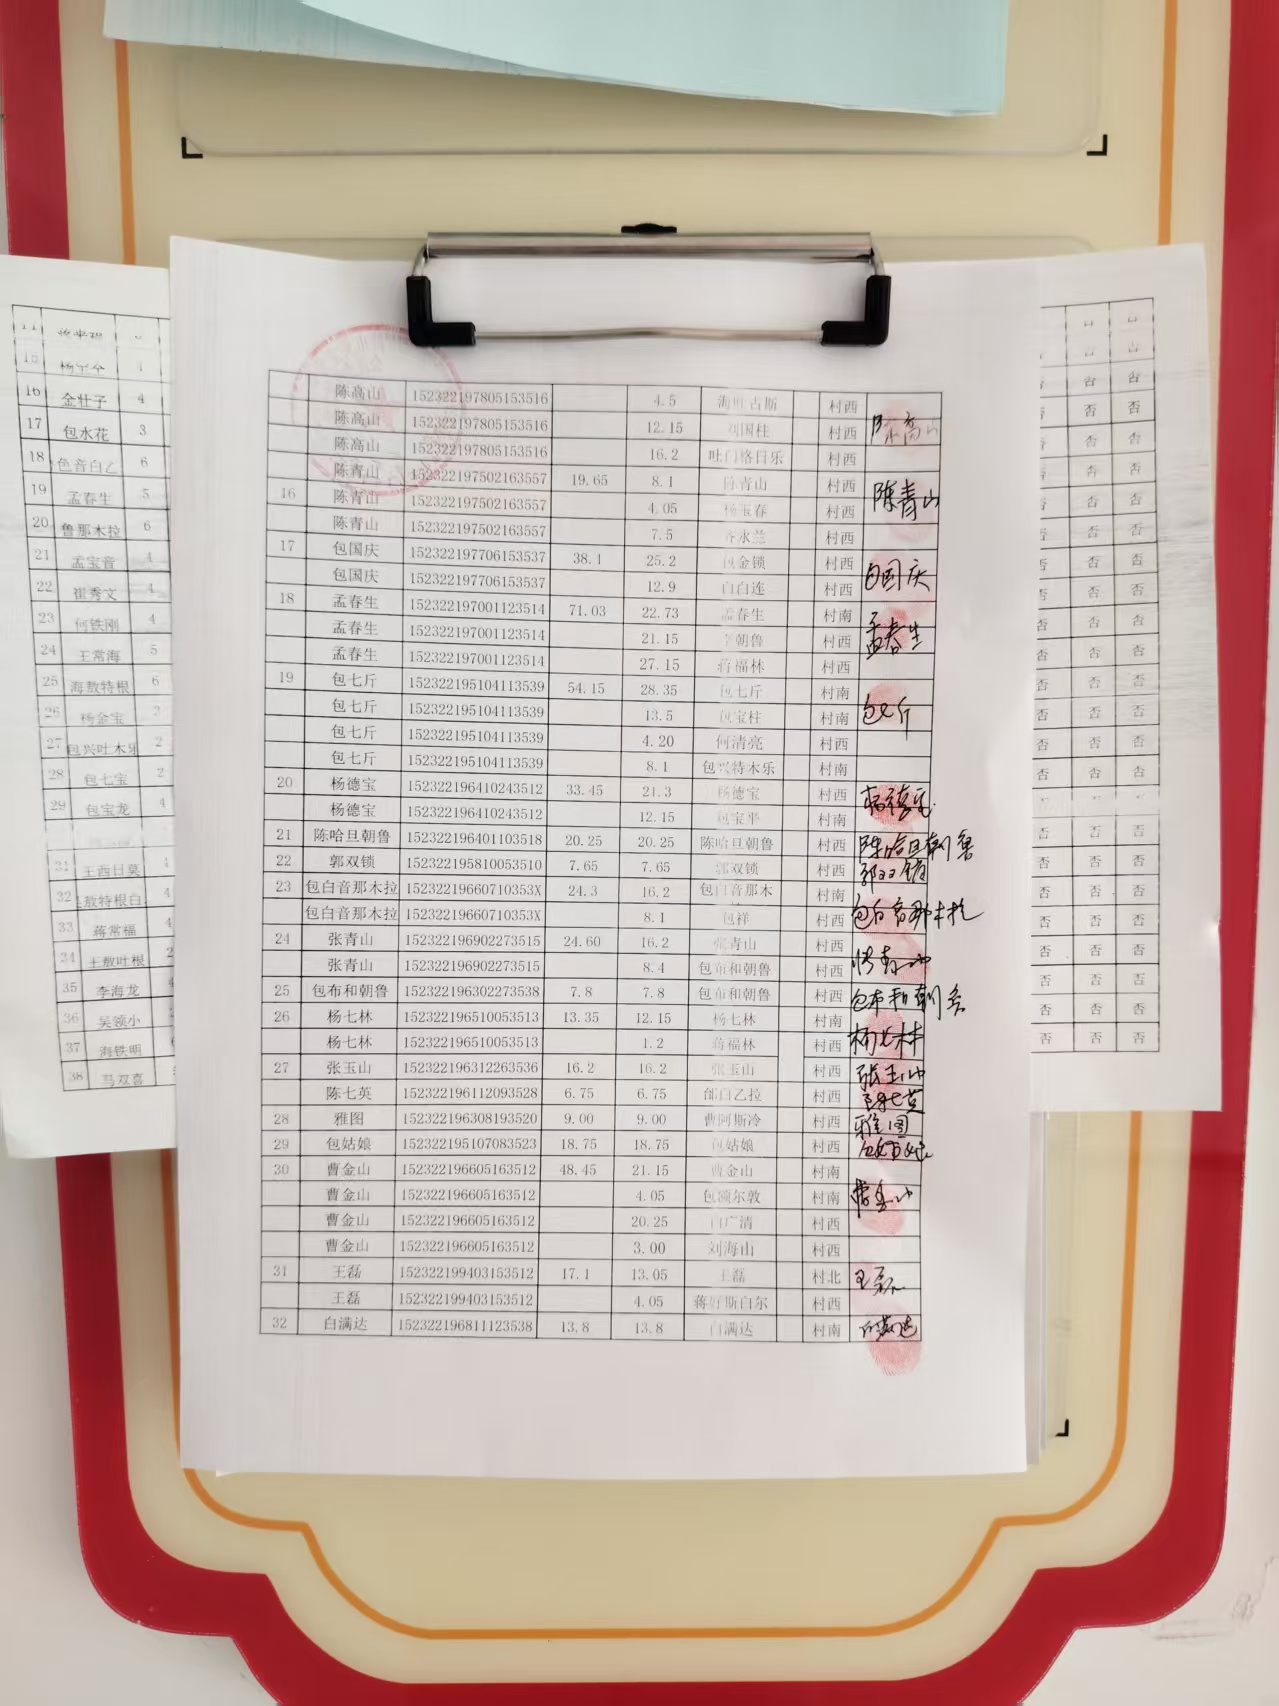 15
16 金壮子 4
17 包水花 3
18 色音白乙 6
19 孟春生 5
20 鲁那木拉 6
21 孟宝音 4
22 崔秀文 4
23 何铁刚 4
24 王常海 5
25 海敖特根 6
26 杨金宝 3
27 包兴吐木乐 2
28 包七宝 2
29 包宝龙 4
31 王西日莫
32 敖特根白 4
33 蒋常福
34 王敖吐根
35 李海龙
36 吴领小
37 海铁明
38 马双喜
陈高山 152322197805153516 4.5 村西
陈高山 152322197805153516 12.15 刘国柱 村西 陈高山
陈高山 152322197805153516 16.2 吐门格日乐 村西
陈青山 152322197502163557 19.65 8.1 陈青山 村西
16 陈青山 152322197502163557 4.05 杨玉春 村西 陈青山
陈青山 152322197502163557 7.5 齐永兰 村西
17 包国庆 152322197706153537 38.1 25.2 包金锁 村西
包国庆 152322197706153537 12.9 白白连 村西 包国庆
18 孟春生 152322197001123514 71.03 22.73 孟春生 村南
孟春生 152322197001123514 21.15 朝鲁 村西 孟春生
孟春生 152322197001123514 27.15 蒋福林 村西
19 包七斤 152322195104113539 54.15 28.35 包七斤 村南
包七斤 152322195104113539 13.5 包宝柱 村南 包七斤
包七斤 152322195104113539 4.20 何清亮 村西
包七斤 152322195104113539 8.1 包兴特木乐 村南
20 杨德宝 152322196410243512 33.45 21.3 杨德宝 村西 杨德宝
杨德宝 152322196410243512 12.15 包宝平 村南
21 陈哈旦朝鲁 152322196401103518 20.25 20.25 陈哈旦朝鲁 村西 陈哈旦朝鲁
22 郭双锁 152322195810053510 7.65 7.65 郭双锁 村西 郭双锁
23 包白音那木拉 15232219660710353X 24.3 16.2 包白音那木 村南
包白音那木拉 15232219660710353X 8.1 包祥 村西 包白音那木拉
24 张青山 152322196902273515 24.60 16.2 张青山 村西
张青山 152322196902273515 8.4 包布和朝鲁 村西 张青山
25 包布和朝鲁 152322196302273538 7.8 7.8 包布和朝鲁 村西 包布和朝鲁
26 杨七林 152322196510053513 13.35 12.15 杨七林 村南
杨七林 152322196510053513 1.2 蒋福林 村西 杨七林
27 张玉山 152322196312263536 16.2 16.2 张玉山 村西 张玉山
陈七英 152322196112093528 6.75 6.75 邰白乙拉 村西 陈七英
28 雅图 152322196308193520 9.00 9.00 曹阿斯冷 村西 雅图
29 包姑娘 152322195107083523 18.75 18.75 包姑娘 村西 包姑娘
30 曹金山 152322196605163512 48.45 21.15 曹金山 村南
曹金山 152322196605163512 4.05 包额尔敦 村南 曹金山
曹金山 152322196605163512 20.25 白广清 村西
曹金山 152322196605163512 3.00 刘海山 村西
31 王磊 152322199403153512 17.1 13.05 王磊 村北 王磊
王磊 152322199403153512 4.05 蒋好斯白尔 村西
32 白满达 152322196811123538 13.8 13.8 白满达 村南 白满达
否 否
否 否 否
否 否 否
否 否 否
否 否 否
否 否 否
否 否 否
否 否 否
否 否 否
否 否 否
否 否 否
否 否 否
否 否 否
否 否 否
否 否 否
否 否 否
否 否 否
否 否 否
否 否 否
否 否 否
否 否 否
否 否 否
否 否 否